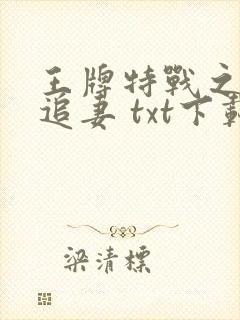 王牌特戰之
追妻 txt下載
梁清標